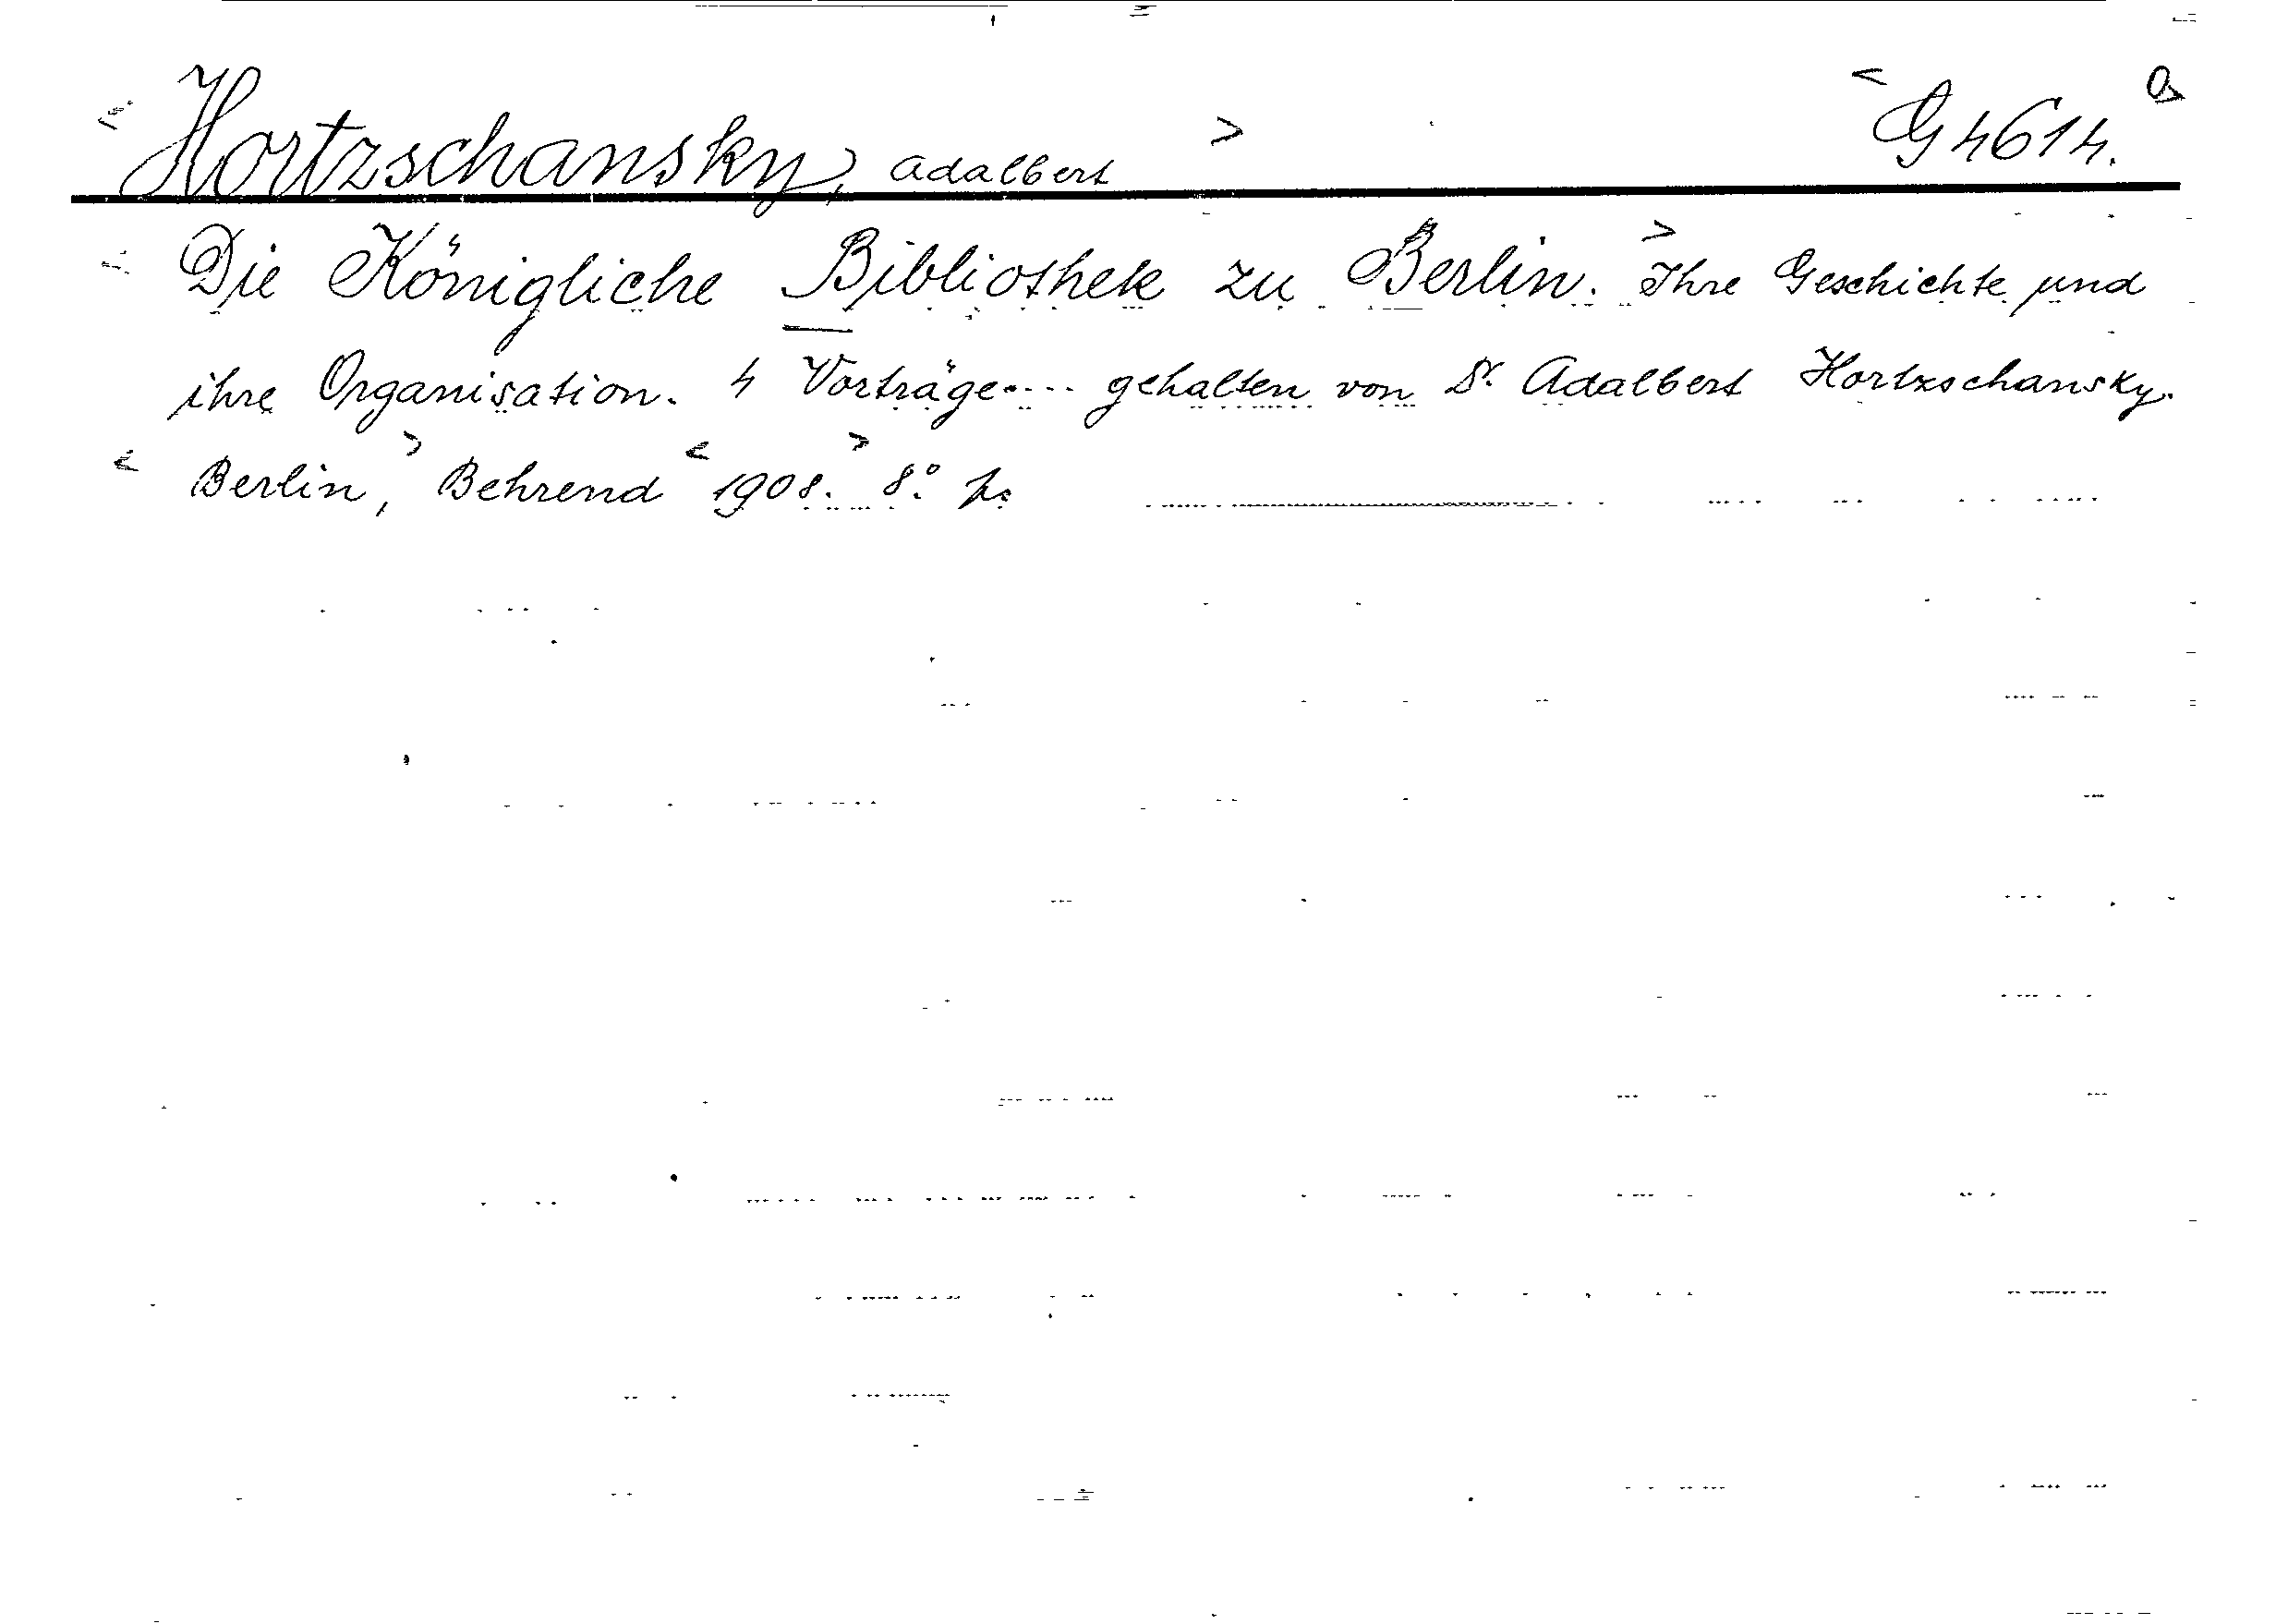 < Hortzschansky, Adalbert > < G 4614. >
Die Königliche Bibliothek zu Berlin. > Ihre Geschichte und
ihre Organisation. 4 Vorträge.... gehalten von Dr. Adalbert Hortzschansky.
< Berlin, > Behrend < 1908. > 8°.